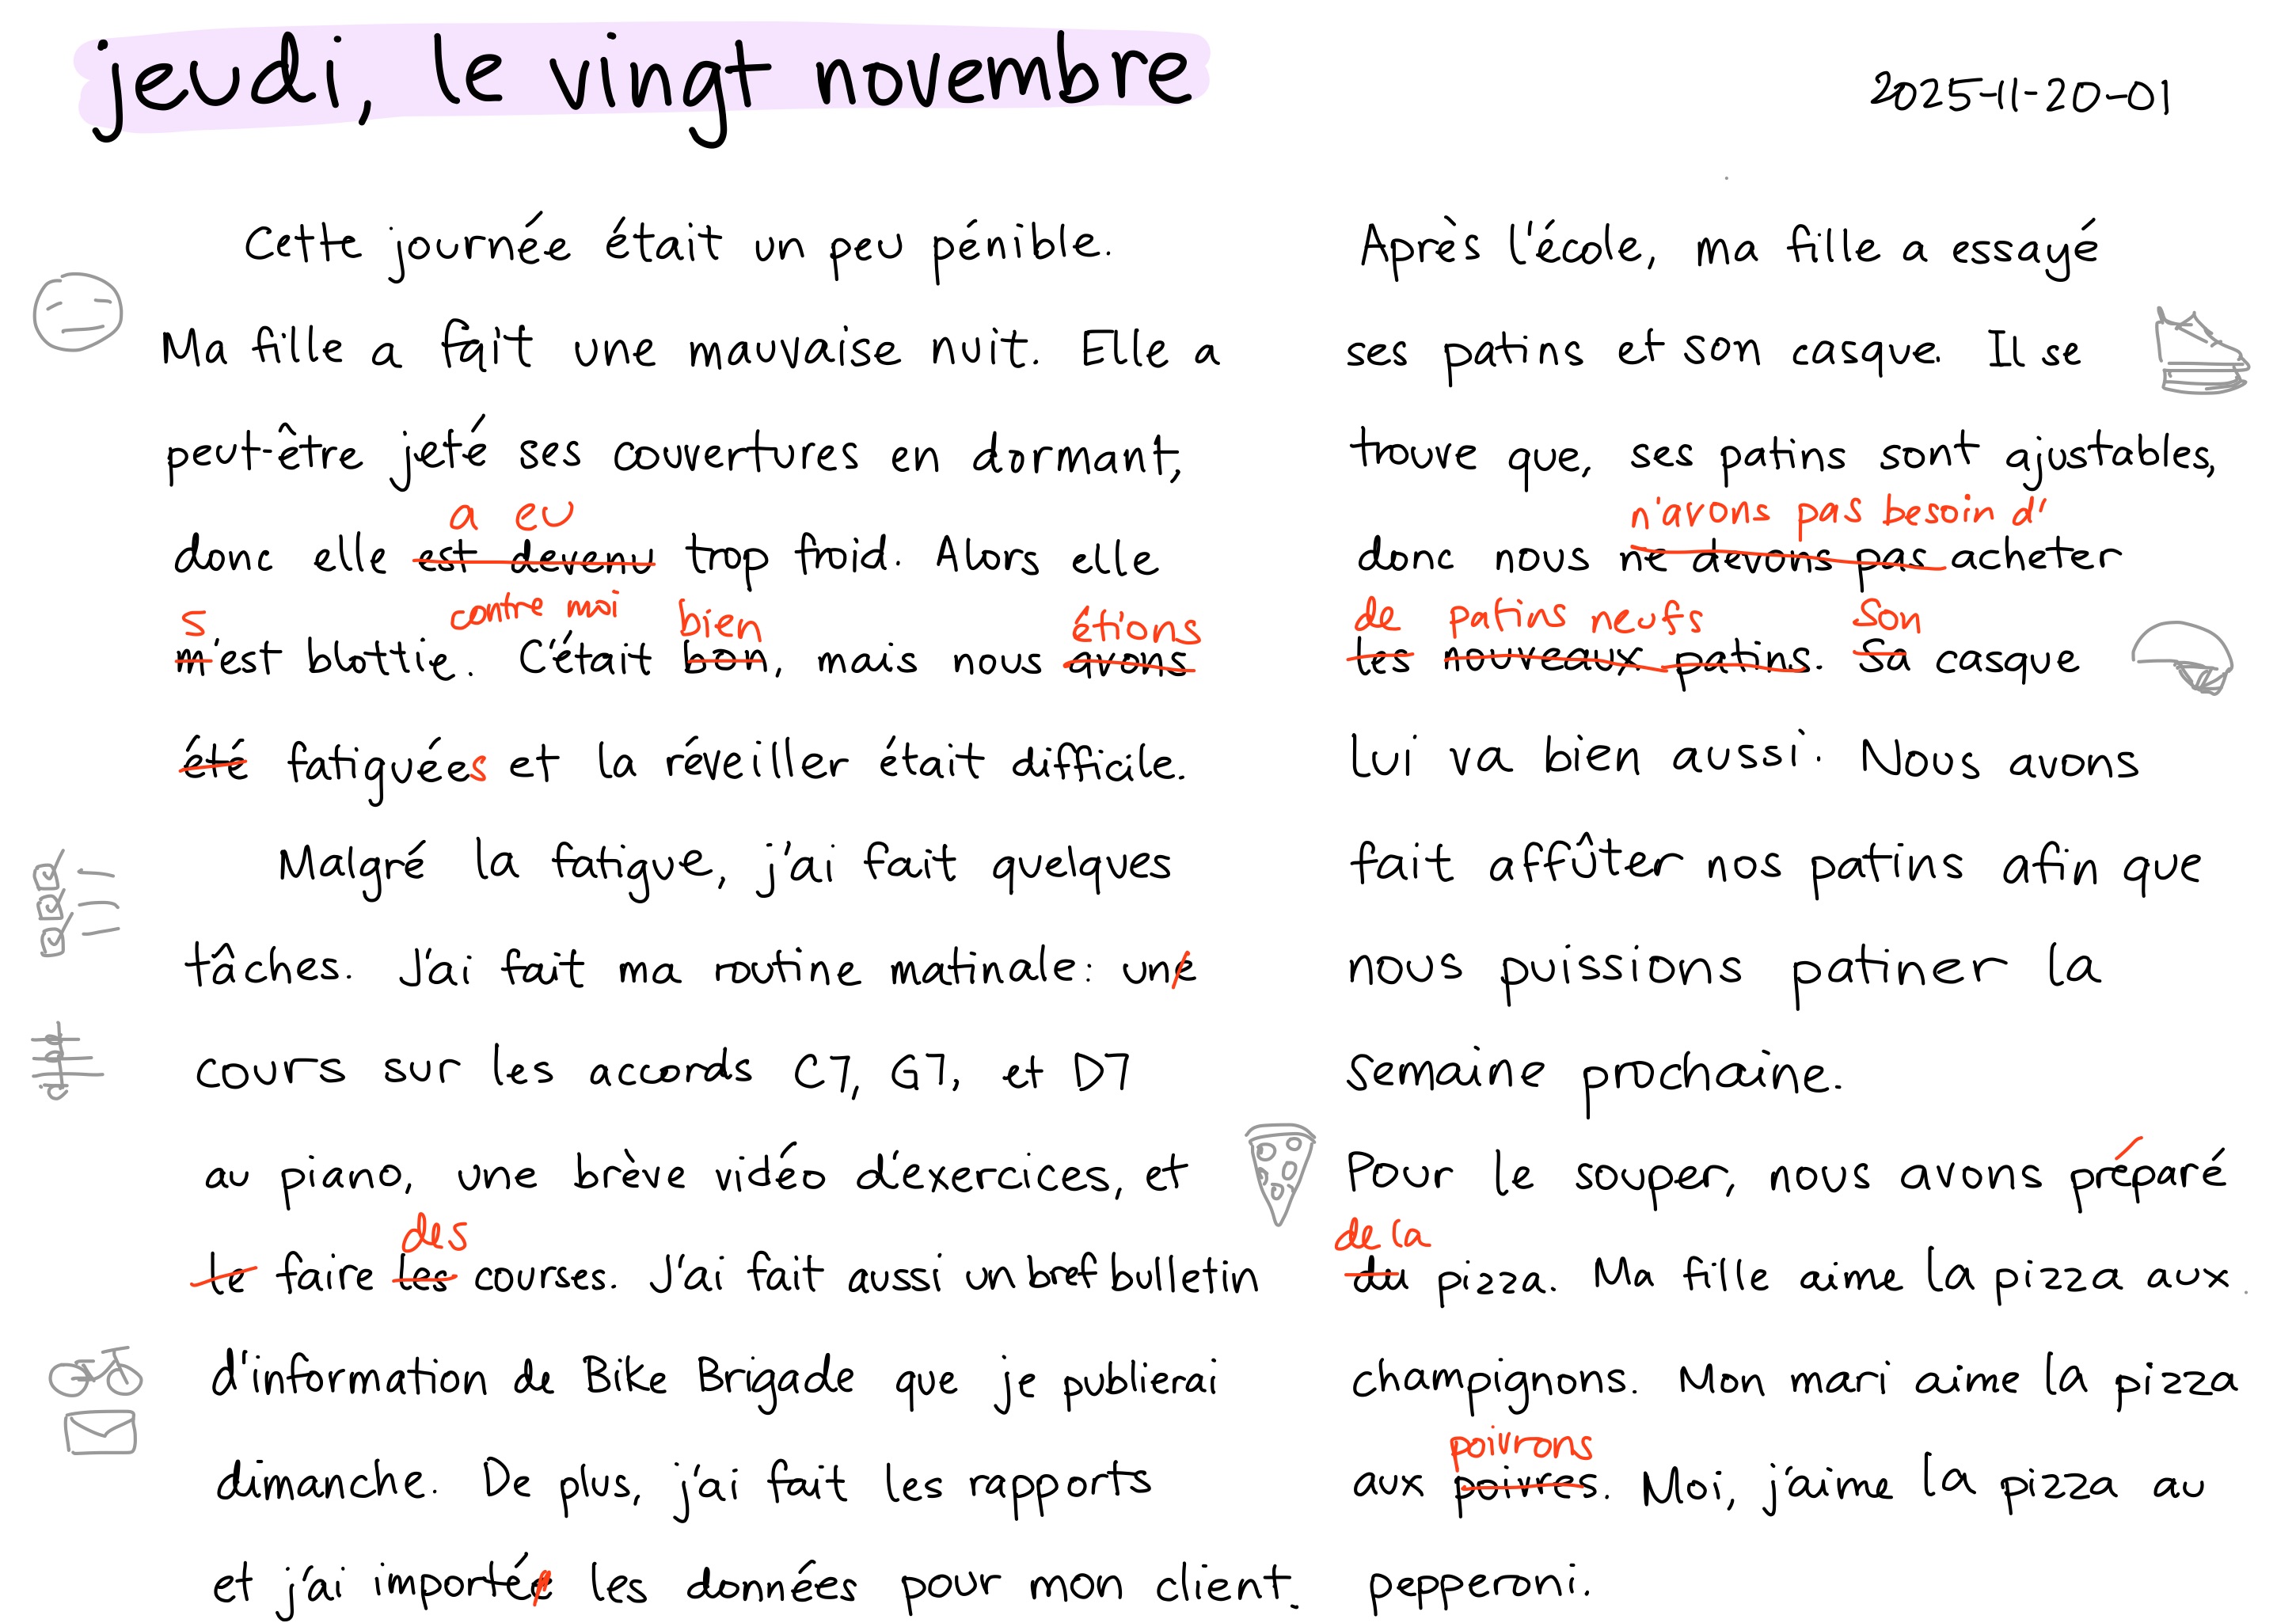 jeudi, le vingt novembre
2025-11-20-01
Cette journée était un peu pénible.
Ma fille a fait une mauvaise nuit. Elle a
peut-être jeté ses couvertures en dormant,
a eu
donc elle est devenu trop froid. Alors elle
s contre moi bien étions
m'est blottie. C'était bon, mais nous avons
été fatiguées et la réveiller était difficile.
Malgré la fatigue, j'ai fait quelques
tâches. J'ai fait ma routine matinale: une
cours sur les accords C7, G7, et D7
au piano, une brève vidéo d'exercices, et
des
le faire les courses. J'ai fait aussi un bref bulletin
d'information de Bike Brigade que je publierai
dimanche. De plus, j'ai fait les rapports
et j'ai importée les données pour mon client.
Après l'école, ma fille a essayé
ses patins et son casque. Il se
trouve que, ses patins sont ajustables,
n'avons pas besoin d'
donc nous ne devons pas acheter
de patins neufs son
les nouveaux patins. Sa casque
lui va bien aussi. Nous avons
fait affûter nos patins afin que
nous puissions patiner la
semaine prochaine.
Pour le souper, nous avons préparé
de la
du pizza. Ma fille aime la pizza aux
champignons. Mon mari aime la pizza
poivrons
aux poivres. Moi, j'aime la pizza au
pepperoni.